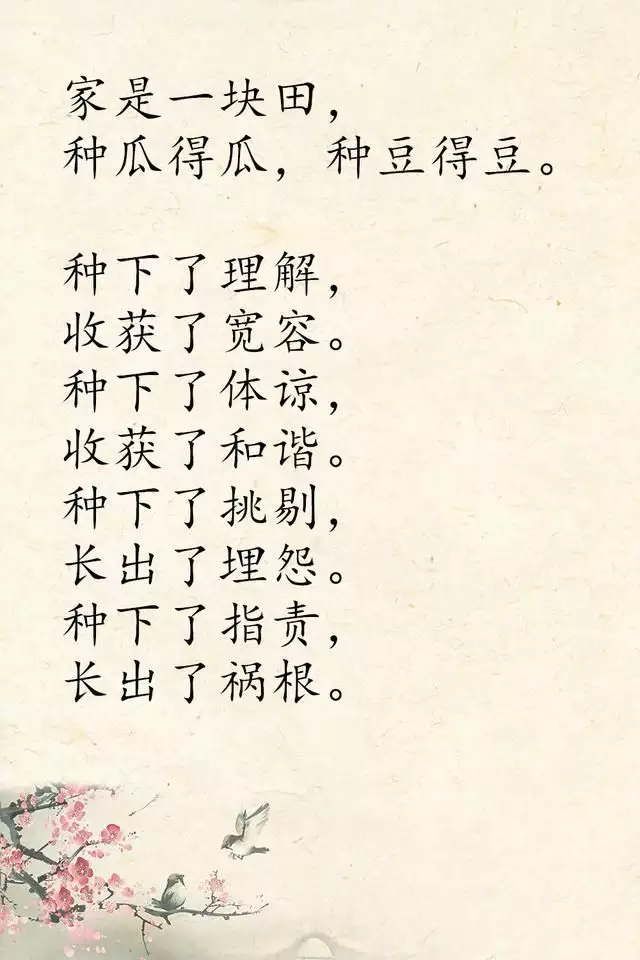 家是一块田，
种瓜得瓜，种豆得豆。
种下了理解，
收获了宽容。
种下了体谅，
收获了和谐。
种下了挑剔，
长出了埋怨。
种下了指责，
长出了祸根。